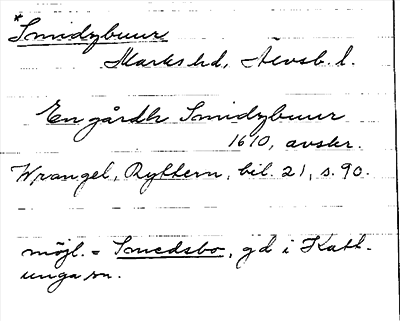 *Smidzbuur
Marks hd, Älvsb. l.
En gårdh Smidzbuur
1610, avskr.
Wrangel, Ryttern, bil. 21, s. 90.
möjl. = Smedsbo, gd i Katt-
unga sn.